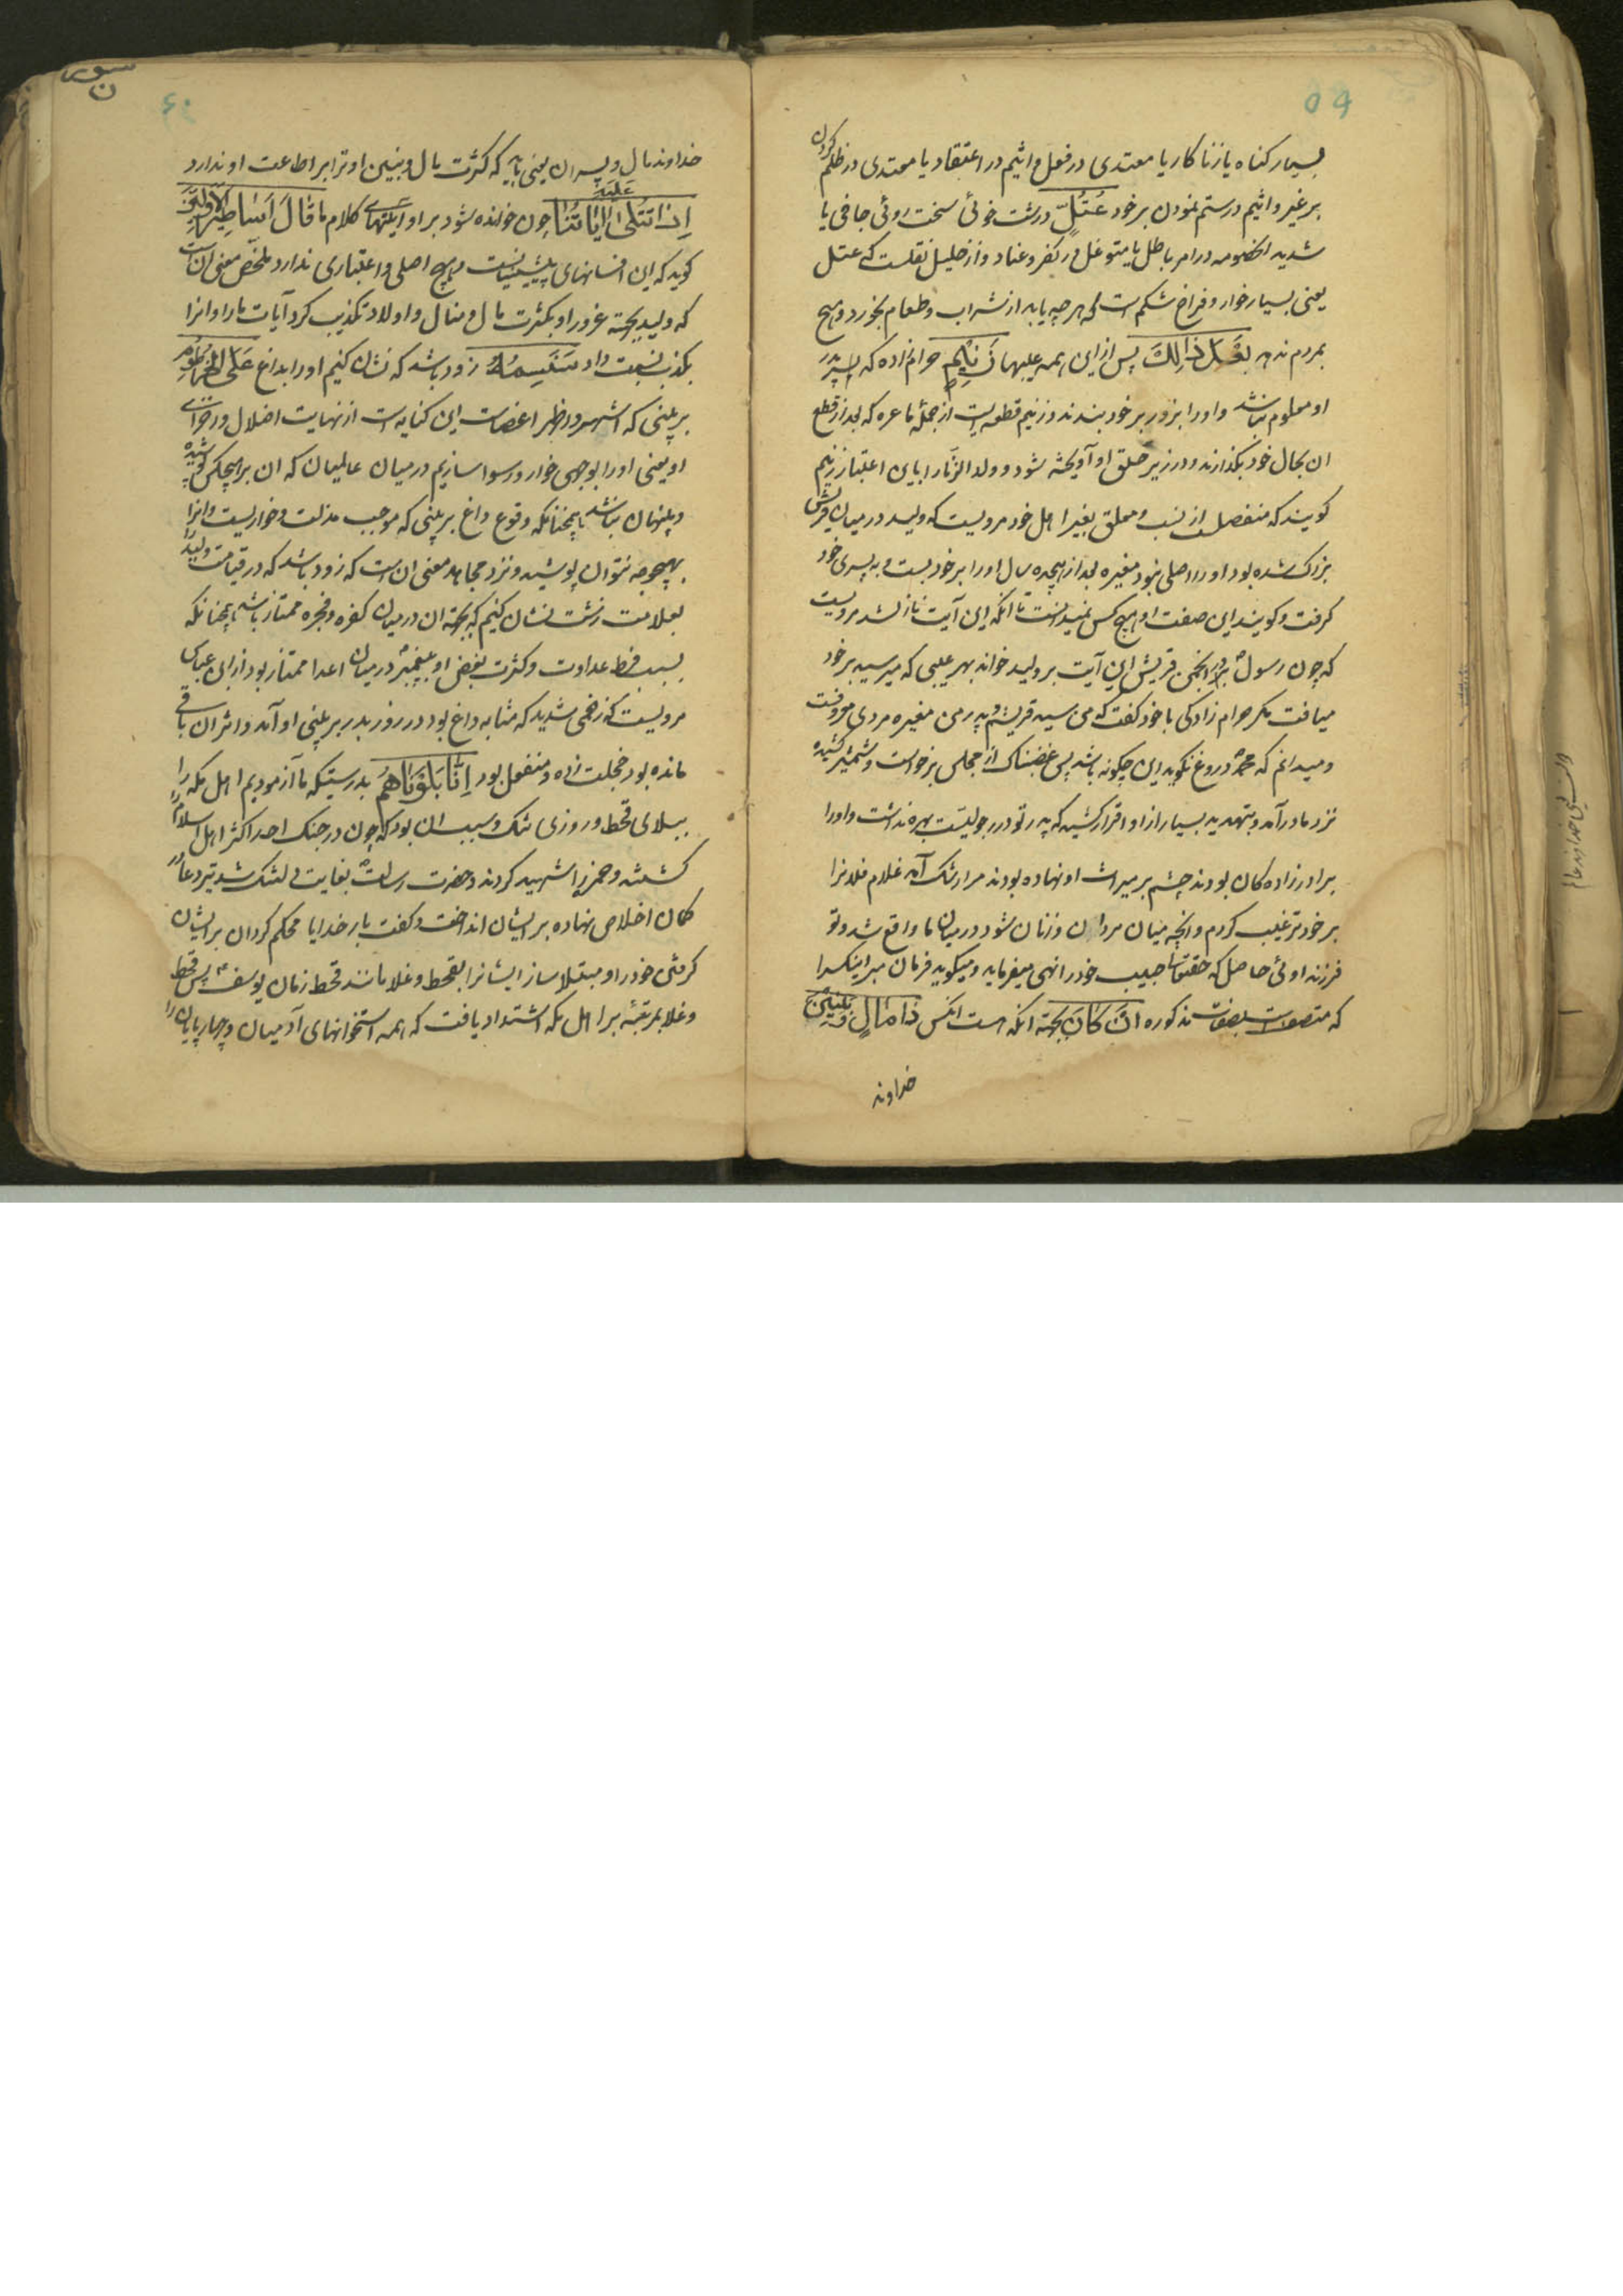 ۵۹
بسیار کناه یا زنا کار یا معتدی در فعل و اثیم در اعتقاد یا معتدی در ظلم کردن
بر غیر و اثیم در ستم نمودن بر خود عُتُلٍّ درشت خوئی سخت روئی جافی یا
شدید الخصومه در امر باطل یا متوغل در کفر و عناد و از خلیل نقلست که عتل
یعنی بسیار خوار و فراخ شکم است که هر چه یابد از شراب و طعام بخورد و هیچ
بمردم ندهد بَعْدَ ذَالِكَ پس از این همه عیبها زَنِیْمٍ حرام زاده که پسر پدر
او معلوم نباشد و او را بزور بر خود بندند و زنیم قطعه ایست از جملۀ ماعره که بعد از قطع
ان بحال خود بکذارند و در زیر حلق او آویخته شود و ولد الزنا را باین اعتبار زنیم
کویند که منفصل از نسب و معلق بغیر اهل خود مرویست که ولید در میان قریش
بزرک شده بود او را اصلی نبود مغیره بعد از هیجده سال او را بر خود بست و به پسری خود
کرفت و کویند این صفت او هیچ کس نمیدانست تا انکه این آیت نازل شد مرویست
که چون رسول در انجمن قریش این آیت بر ولید خواند بهر عیبی که میرسید بر خود
میافت مکر حرام زادکی با خود کفت که من سید قریشم و پدر من مغیره مردی معروفست
و میدانم که محمد دروغ نکوید این چکونه باشد پس غضبناک از مجلس برخواست و شمشیر کشیده
نزد مادر آمد و بتهدید بسیار از او اقرار کشید که پدر تو در رجولیت بهره نداشت و او را
برادر زاده کان بودند چشم بر میراث او نهاده بودند مرا رشک آمد غلام فلانرا
بر خود ترغیب کردم و انچه میان مردان و زنان شود در میان ما واقع شد و تو
فرزند اوئی حاصل که حقتعالی حبیب خود را نهی میفرماید و میکوید فرمان مبر اینکس را
که متصف است بصفات مذکوره اَنْ كَانَ بجهته انکه هست انکس ذَا مَالٍ وَبَنِيْنَ
خداوند
سوره
ن
۶۰
خداوند مال و پسران یعنی باید که کثرت مال و بنین او ترا بر اطاعت او ندارد
اِذَا تُتْلَى عَلَيْهِ اٰيَاتُنَا چون خوانده شود بر او آیتهای کلام ما قَالَ اَسَاطِيْرُ الْاَوَّلِيْنَ
کوید که این افسانهای پیشینیانست و هیچ اصلی و اعتباری ندارد ملخص معنی انست
که ولید بجهته غرور او بکثرت مال و منال و اولاد تکذیب کرد آیات ما را و انرا
بکذب نسبت داد سَنَسِمُهُ زود باشد که نشان کنیم او را بداغ عَلَى الْخُرْطُوْمِ
بر بینی که اشهر و اظهر اعضاست این کنایه است از نهایت اضلال و رسوائی
او یعنی او را بوجهی خوار و رسوا سازیم در میان عالمیان که ان بر هیچکس پوشیده
و پنهان نباشد همچنانکه وقوع داغ بر بینی که موجب مذلت و خواریست و انرا
بهیچوجه نتوان پوشید و نزد مجاهد معنی انست که زود باشد که در قیامت ولید را
بعلامت زشت نشان کنیم که بجهته ان در میان کفره و فجره ممتاز باشد همچنانکه
بسبب فرط عداوت و کثرت بغض او به پیغمبر در میان اعدا ممتاز بود از ابن عباس
مرویست که زخمی شدید که مثابه داغ بود در روز بدر بر بینی او آمد و اثر ان باقی
مانده بود و خجلت زده و منفعل بود اِنَّا بَلَوْنَاهُمْ بدرستیکه ما آزمودیم اهل مکه را
ببلای قحط و روزی تنک و سبب ان بود که چون در جنک احد اکثر اهل اسلام را
کشتند و حمزه را شهید کردند و حضرت رسالت بغایت دلتنک شد تیر دعا در
کمان اخلاص نهاده بر ایشان انداخت و کفت بار خدایا محکم کردان بر ایشان
کرفتن خود را و مبتلا ساز ایشانرا بقحط و غلا مانند قحط زمان یوسف پس قحط
و غلا بمرتبۀ بر اهل مکه اشتداد یافت که همه استخوانهای آدمیان و چهار پایان را